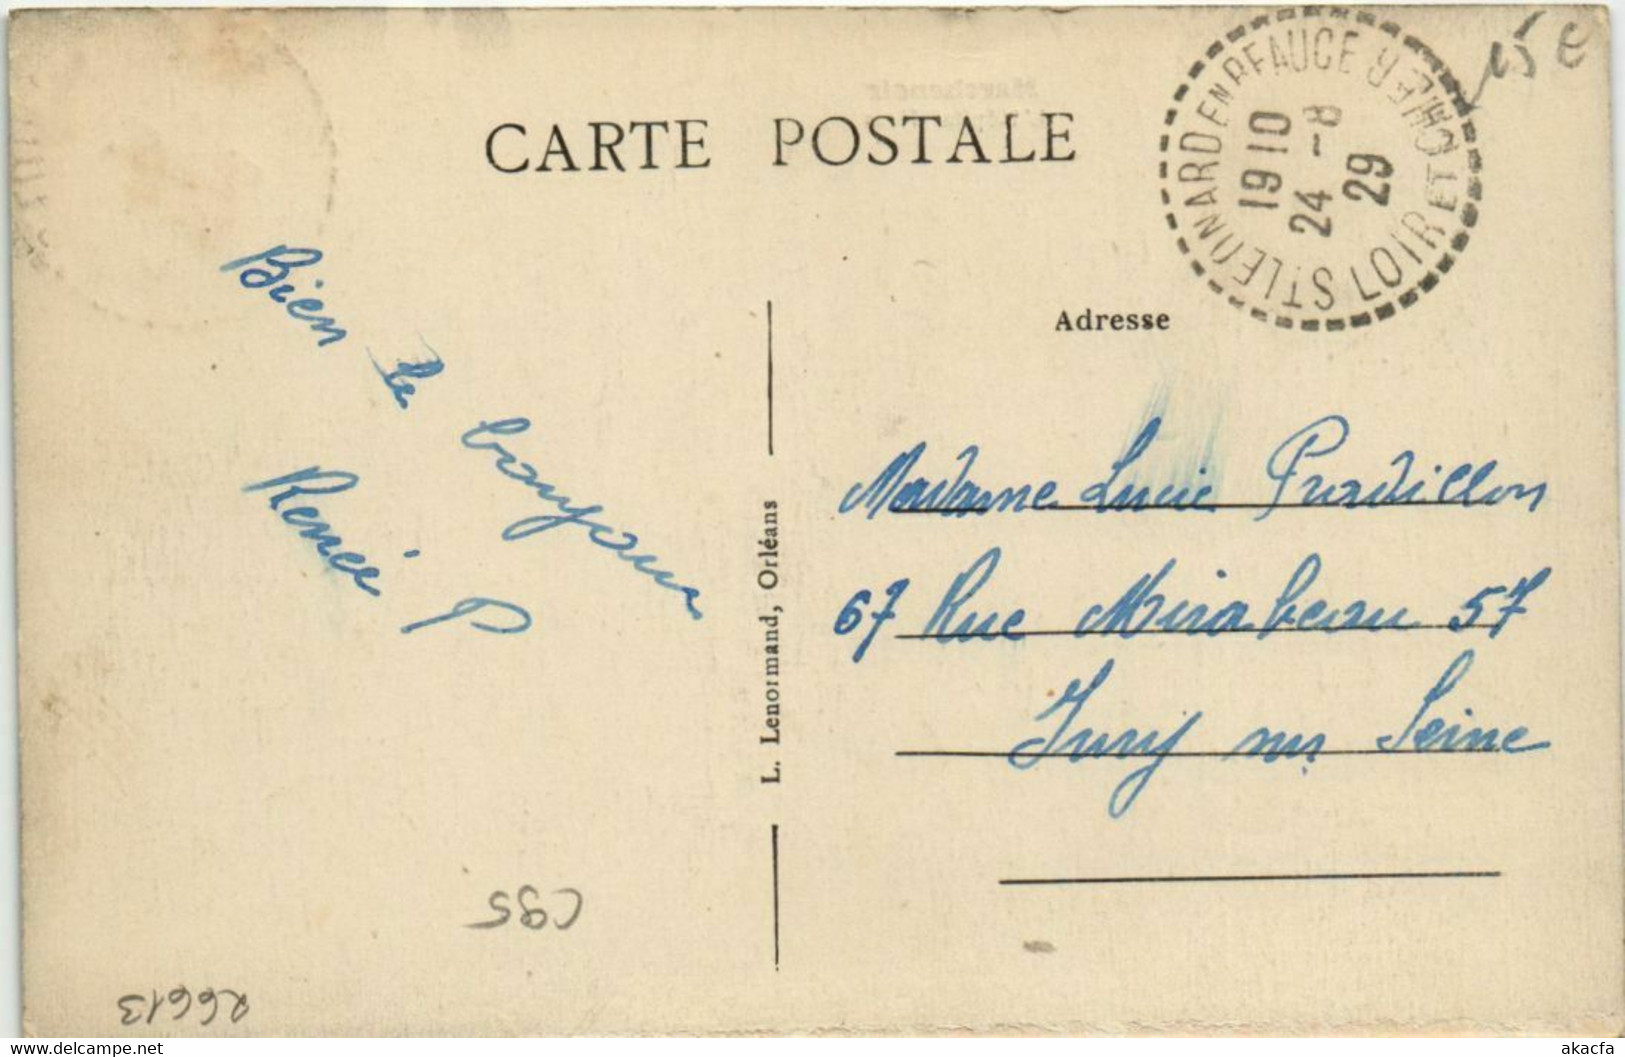 CARTE POSTALE
ST LEONARD EN BEAUCE LOIR ET CHER
19 10
24 - 8
29
15 €
Adresse
Bien le bonjour
Renée P
L. Lenormand, Orléans
Madame Lucie
67 Rue Mirabeau 57
Ivry sur Seine
C95
26613
akacfa